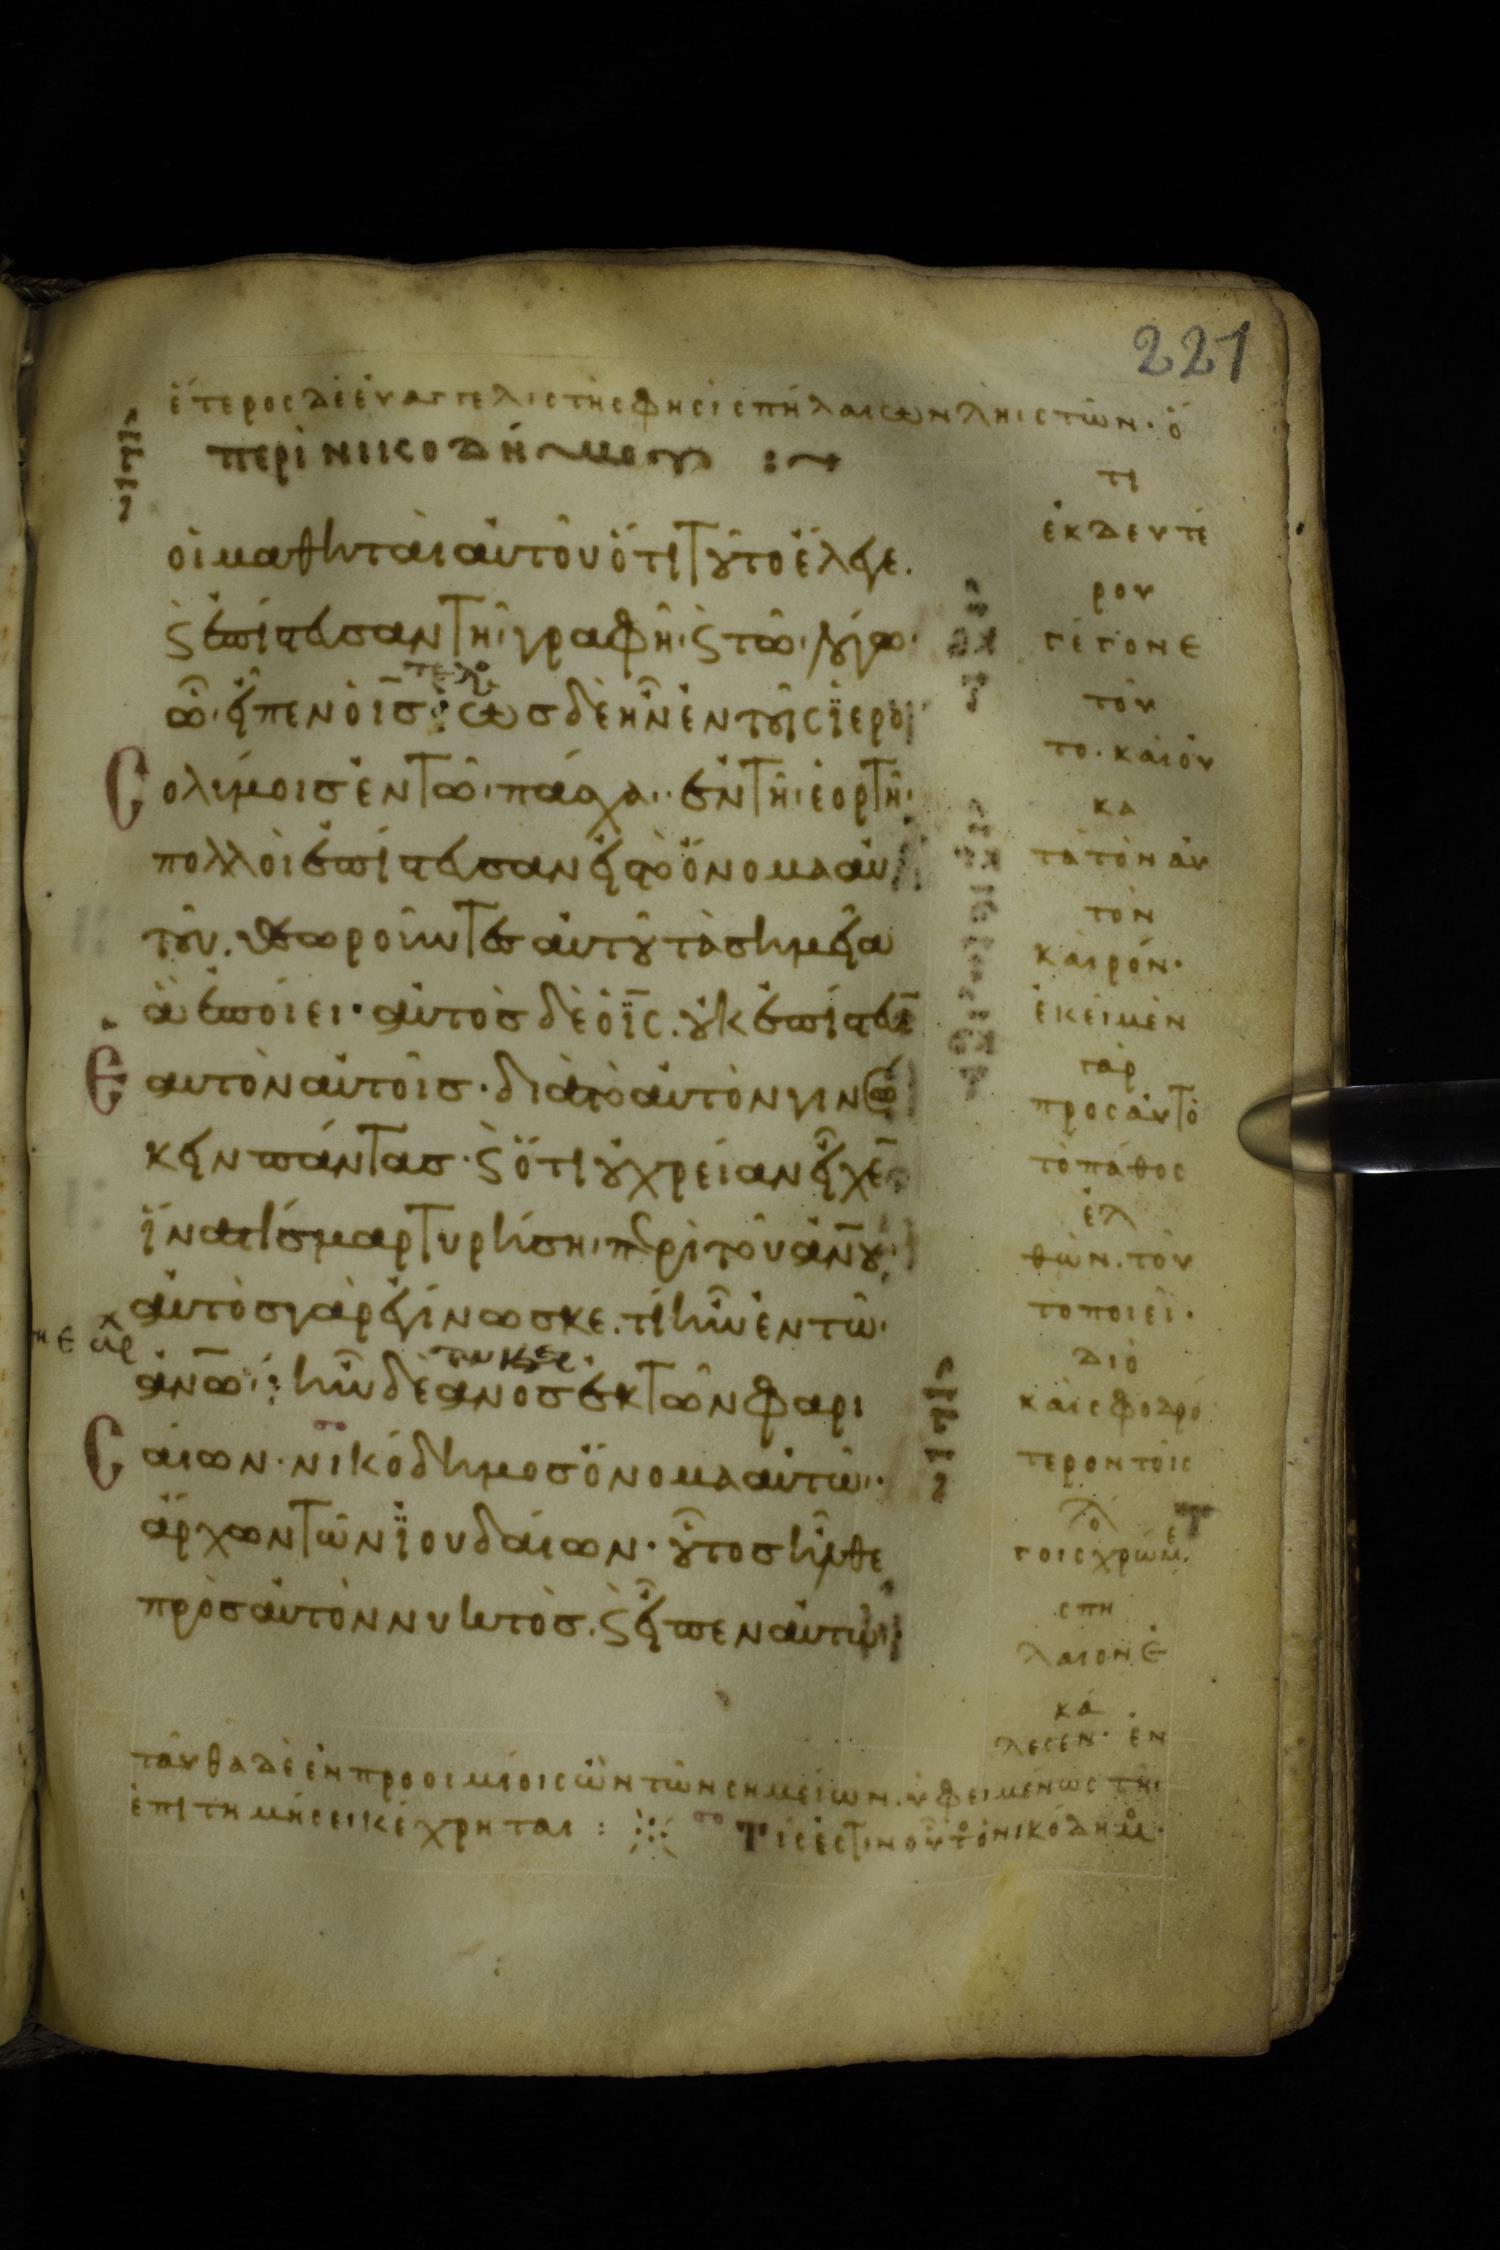 221
ἕτερος δὲ εὐαγγελιστὴς φησὶ σπήλαιων ληιστῶν· ὅ
περὶ νικοδήμου :~
οἱ μαθηταὶ αὐτοῦ ὅτι τοῦτο ἔλεγε.
ϛ ἐπίστευσαν τῆ γραφῆ· ϛ τῶ λόγω·
ὧ εἶπεν ὁ ισ̅: ὡσ δὲ ἦν ἐν τοῖς ϊερο
τελο
σολύμοισ ἐν τῶ πάσχα· ἐν τῆ ἑορτῆ·
πολλοὶ ἐπίστευσαν εἰσ τὸ ὄνομα αὐ
τοῦ. θεωροῦντεσ αὐτοῦ τὰ σημεῖα
ἃ ἐποίει· αὐτὸσ δὲ ὁ ϊς̅. οὐκ ἐπίστευε̅
ἑαυτὸν αὐτοῖσ· διὰ τὸ αὐτὸν γινώ
σκειν πάντασ· ϛ ὅτι οὐ χρείαν εἶχε̅
ἵνα τίσ μαρτυρήση· περὶ τοῦ αν̅ου·
αὐτὸσ γὰρ ἐγίνωσκε. τί ἦν ἐν τῶ
αν̅ω: ἦν δὲ ανοσ ἐκ τῶν φαρι
σαίων· νικόδημοσ ὄνομα αὐτῶ·
ἄρχων τῶν ϊουδαίων· οὗτοσ ἦλθε
πρὸσ αὐτὸν νυκτὸσ. ϛ εἶπεν αὐτῶ
τι
ἐκ δευτέ
ρου
γέγονε
τοῦ
το. καὶ οὐ
κα
τὰ τὸν αὐ
τὸν
καιρόν·
ἐκεῖ μὲν
γὰρ
προς αὐτὸ
τὸ πάθος
ἐλ
θὼν. τοῦ
το ποιεῖ·
διὸ
καὶ σφοδρό
τερον τοῖς
λό
γοις χρώμε
σπή
λαιον ἐ
κά
λεσεν· ἐν
ταῦθα δὲ ἐν προοιμίοις ὢν τῶν σημείων. ὑφειμένως τῆι
ἐπιτημήσει κέχρηται :
τίς ἐστιν οὗτο ὁ νικόδημο·